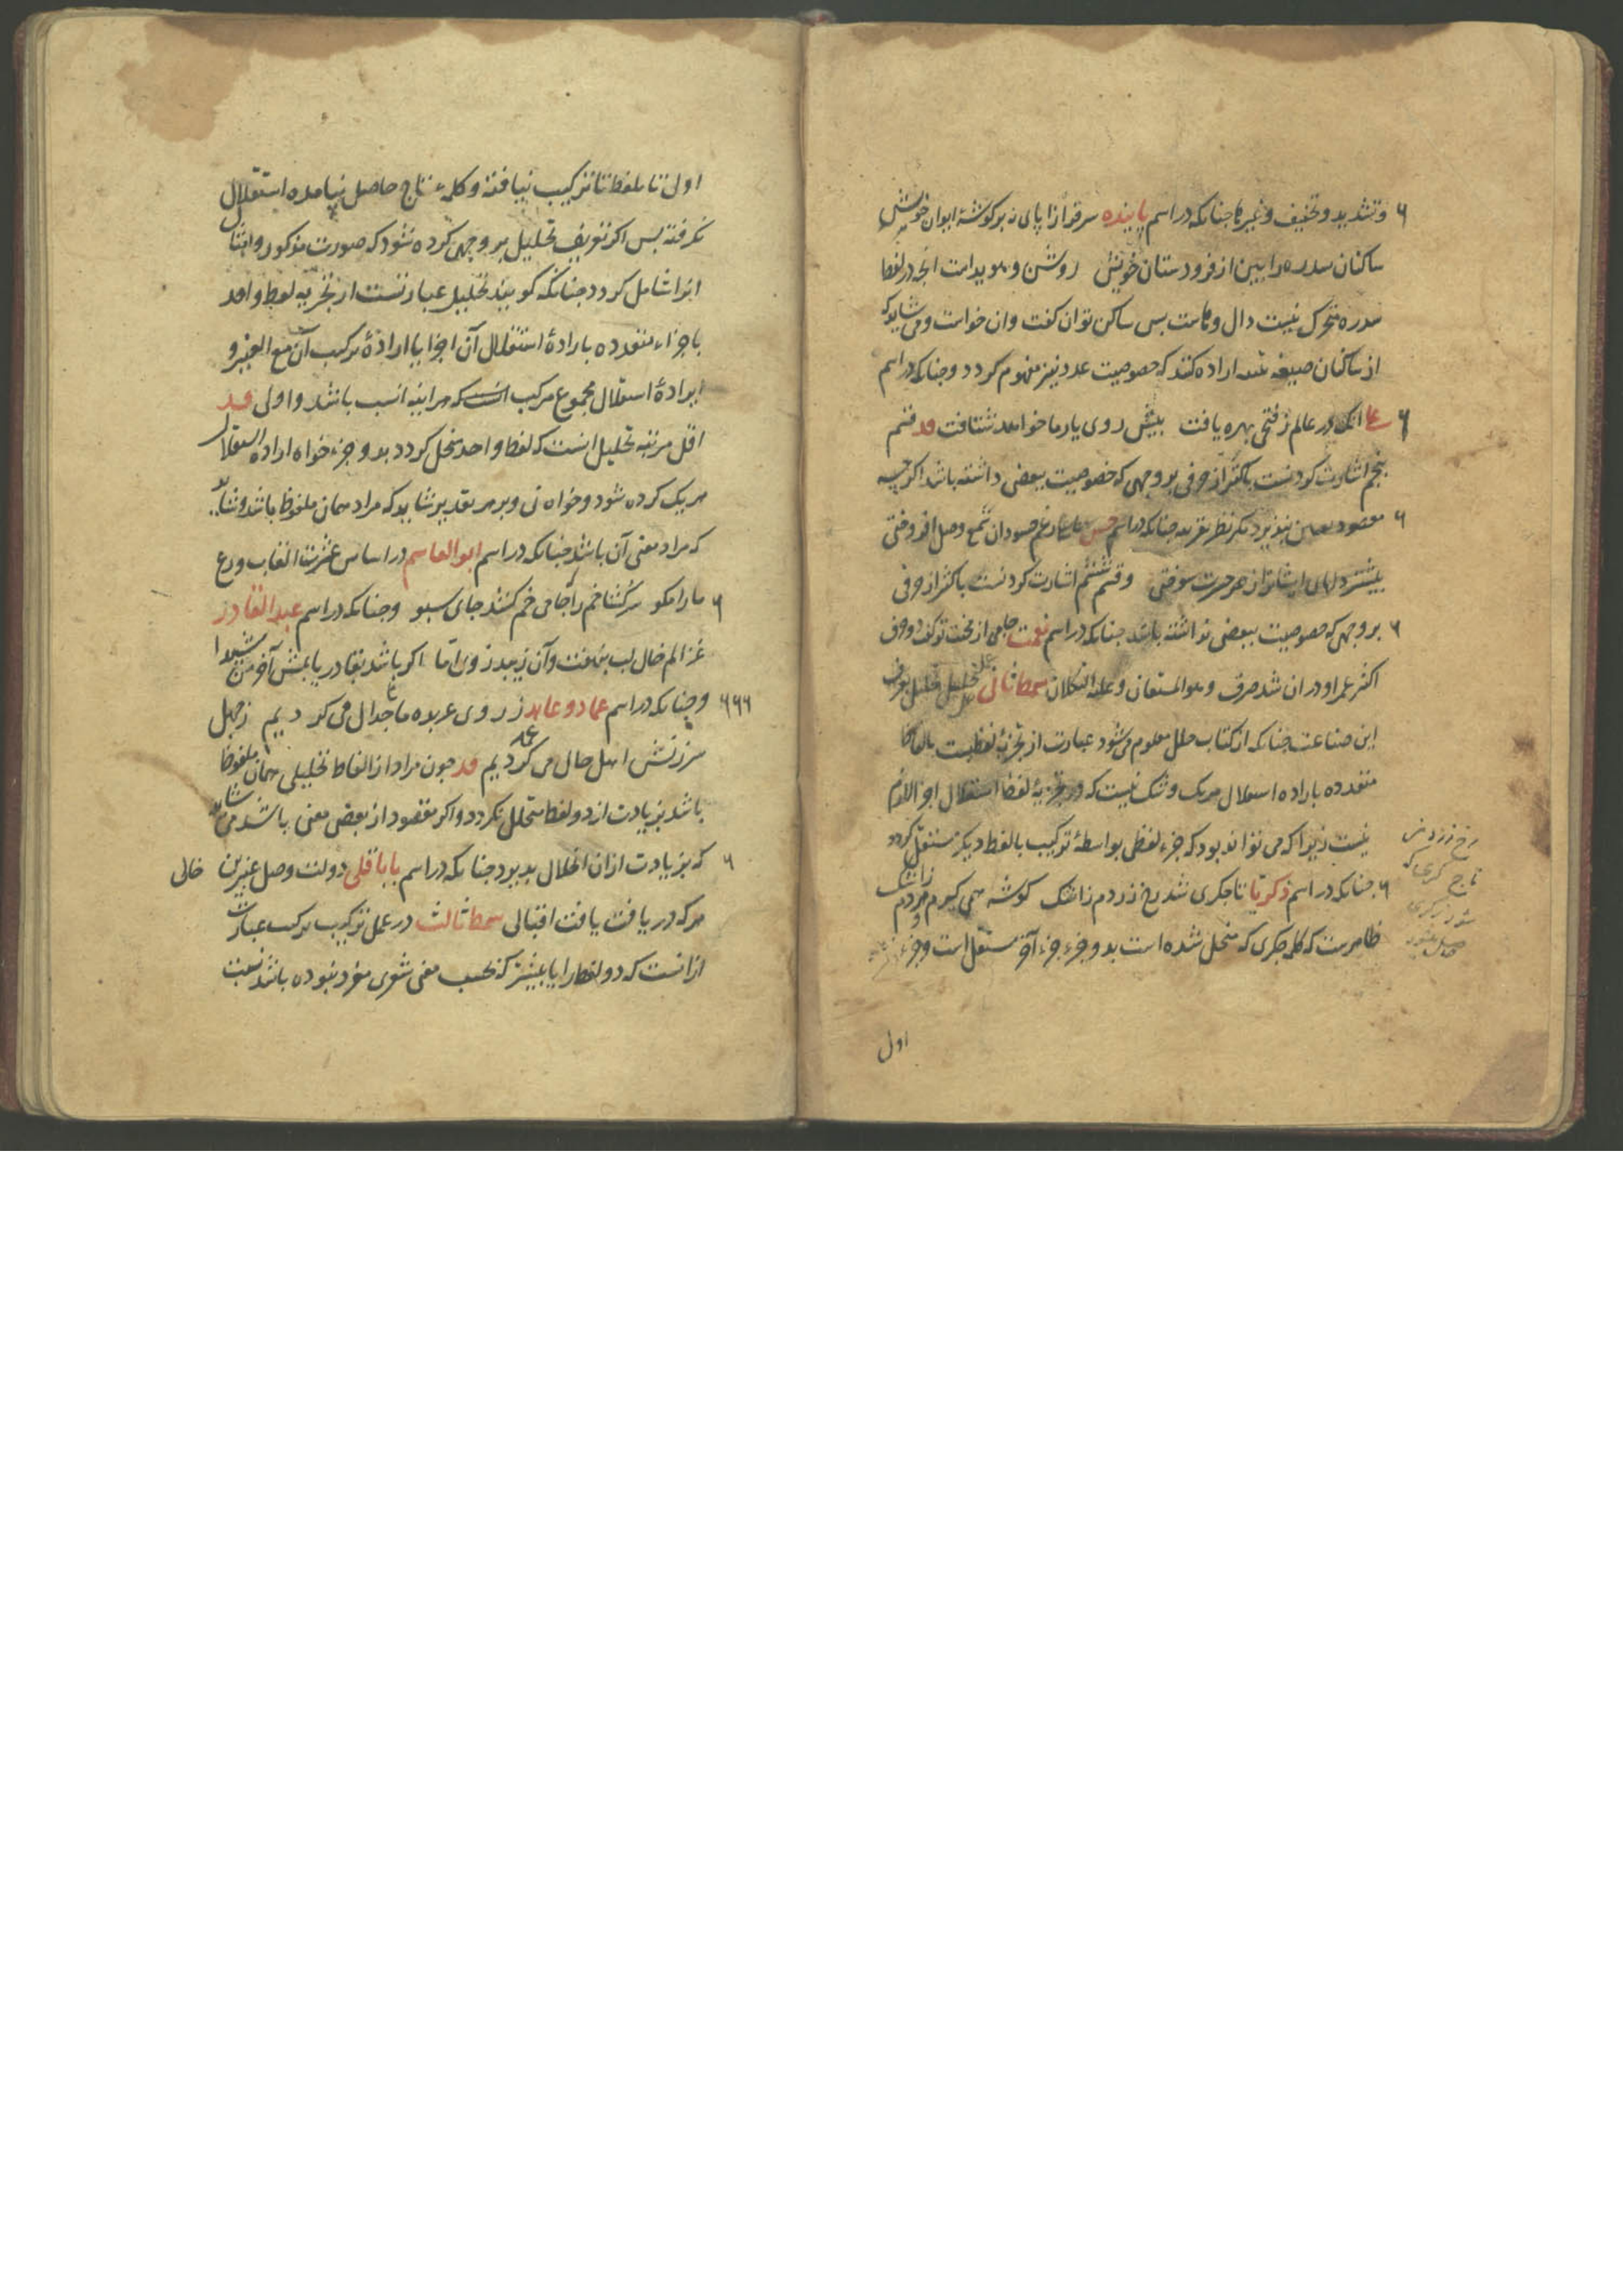 وتشدید وتخفیف وغیرها جنانکه در اسم پاینده سرفراز از پای نه بر کوشهٔ ایوان خویش
ساکنان سدره را بین از فرودستان خویش روشن وهویداست انچه در لفظ
سدره متحرک نیست دال وهاست بس ساکن توان کفت وان خواست ومی شاید که
از ساکنان صیغه تثنیه اراده کنند که خصوصیت عدد نیز مفهوم کردد وجنانکه در اسم
علی انک در عالم ز فتحی بهره یافت بیش روی یار ما خواهد شتافت قسم
بنجم اشارت کردنست باکثر از حرفی بر وجهی که خصوصیت ببعضی داشته باشد اکرچه
مقصود تعین نپذیرد مکر نظر بقرینه جنانکه در اسم حسن رغم حسودان شمع وصل افروختی
بیشتر دلهای ایشان از حسرت سوختی وقسم ششم اشارت کردنست باکثر از حرفی
بر وجهی که خصوصیت ببعضی نداشته باشد جنانکه در اسم نعمت جامی از بخت تو کفت دو حرف
اکثر عمر او در ان شد صرف وهو المستعان وعلیه التکلان سمط ثانی عمل تحلیل تحلیل بعرف
این صناعت جنانکه از کتاب حلل معلوم می شود عبارت از تجزیهٔ لفظیست بالفاظ
متعدده باراده استقلال هریک وشک نیست که در تجزیهٔ لفظ استقلال اجزا لازم
نیست زیرا که می تواند بود که جزء لفظی بواسطهٔ ترکیب بالفظ دیکر مستقل کردد
جنانکه در اسم زکریا تا جکری شد رخ زردم ز اشک کوشه همی کیرم مردم ز اشک
ظاهرست که کلمه جکری که منحل شده است بدو جزء جزء آخر مستقل است وجزء
رخ زردش
تاج کری که
اول
اولی تا بلفظ تا ترکیب نیافته وکلمهٔ تاج حاصل نیامده استقلال
نکرفته بس اکر تعریف تحلیل بر وجهی کرده شود که صورت مذکور وامثال
انرا شامل کردد جنانکه کویند تحلیل عبارتست از تجزیه لفظ واحد
باجزاء متعدده بارادهٔ استقلال آن اجزا یا ارادهٔ ترکیب آن مع الغیر و
ارادهٔ استقلال مجموع مرکب هراینه انسب باشد واولی
اقل مرتبه تحلیل انست که لفظ واحد منحل کردد بدو جزء خواه اراده استقلال
هریک کرده شود وخواه نی وبر هر تقدیر شاید که مراد همان ملفوظ باشد وشاید
که مراد معنی آن باشد جنانکه در اسم ابو القاسم در اساس عشرت القاب ورع
ما را مکو سرکشا خم را جامی خم کشد جای سبو وجنانکه در اسم عبد القادر
غزالم خال لب بنهفت وآن زیبد ز وی اما اکر باشد بقا دریابمش آخر من شیدا
وجنانکه در اسم عماد وعابد ز روی عربده ما جدال می کردیم ز جهل
سرزنش اهل حال می کردیم جون مراد از الفاظ تحلیلی همان ملفوظ
باشد بزیادت از دو لفظ متحلل نکردد واکر مقصود از بعضی معنی باشد می شاید
که بزیادت ازان انحلال بدیرد جنانکه در اسم بابا قلی دولت وصل عنبرین خالی
هرکه دریافت یافت اقبالی سمط ثالث در عمل ترکیب ترکیب عبارت
ازانست که دو لفظ را یا بیشتر که بحسب معنی شعری مفرد نبوده باشد نسبت